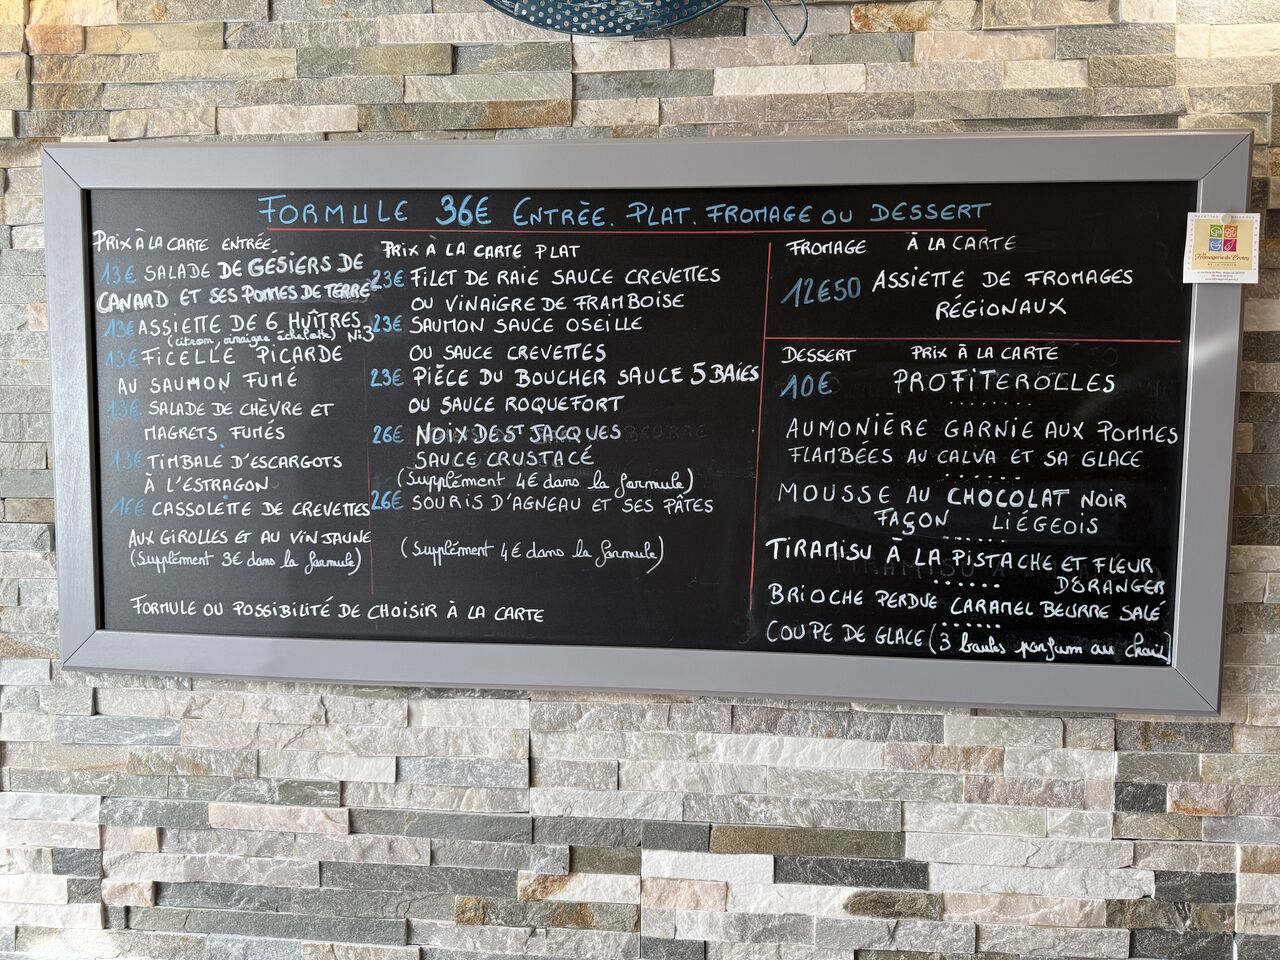 FORMULE 36€ ENTRÈE. PLAT. FROMAGE OU DESSERT
PRIX À LA CARTE ENTRÉE
13€ SALADE DE GÉSIERS DE
CANARD ET SES POMMES DE TERRE
13€ ASSIETTE DE 6 HUÎTRES
(citron, vinaigre échalotte) N:3
13€ FICELLE PICARDE
AU SAUMON FUMÉ
13€ SALADE DE CHÈVRE ET
MAGRETS FUMÉS
13€ TIMBALE D'ESCARGOTS
À L'ESTRAGON
16€ CASSOLETTE DE CREVETTES
AUX GIROLLES ET AU VIN JAUNE
(Supplément 3€ dans la formule)
PRIX À LA CARTE PLAT
23€ FILET DE RAIE SAUCE CREVETTES
OU VINAIGRE DE FRAMBOISE
23€ SAUMON SAUCE OSEILLE
OU SAUCE CREVETTES
23€ PIÈCE DU BOUCHER SAUCE 5 BAIES
OU SAUCE ROQUEFORT
26€ NOIX DE ST JACQUES
SAUCE CRUSTACÉ
(Supplément 4€ dans la formule)
26€ SOURIS D'AGNEAU ET SES PÂTES
(Supplément 4€ dans la formule)
FORMULE OU POSSIBILITÉ DE CHOISIR À LA CARTE
FROMAGE À LA CARTE
12€50 ASSIETTE DE FROMAGES
RÉGIONAUX
DESSERT PRIX À LA CARTE
10€ PROFITEROLLES
AUMONIÈRE GARNIE AUX POMMES
FLAMBÉES AU CALVA ET SA GLACE
MOUSSE AU CHOCOLAT NOIR
FAÇON LIÉGEOIS
TIRAMISU À LA PISTACHE ET FLEUR
D'ORANGER
BRIOCHE PERDUE CARAMEL BEURRE SALÉ
COUPE DE GLACE (3 boules parfum au choix)
Fromagerie du Crotoy